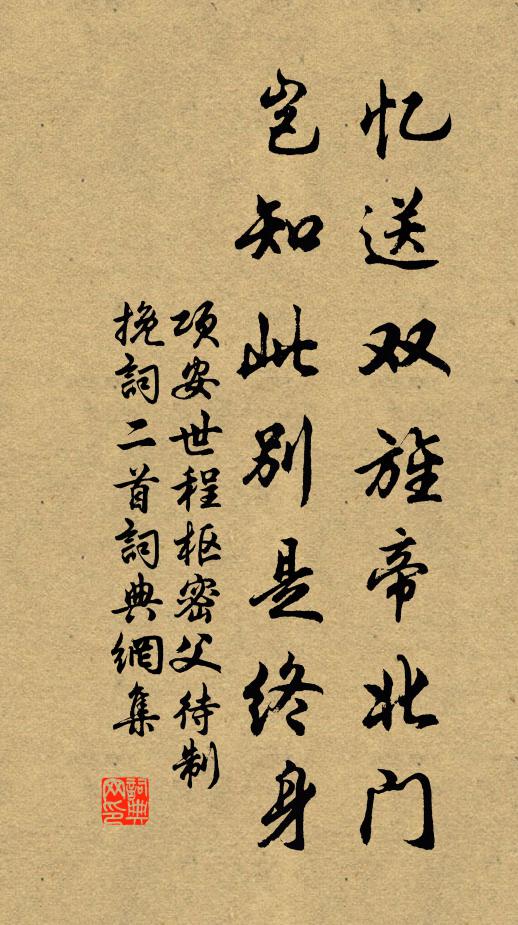 忆送双旌帝北门
岂知此别是终身
项安世程枢密父待制
挽詞二首詞典網集
詞典
网印